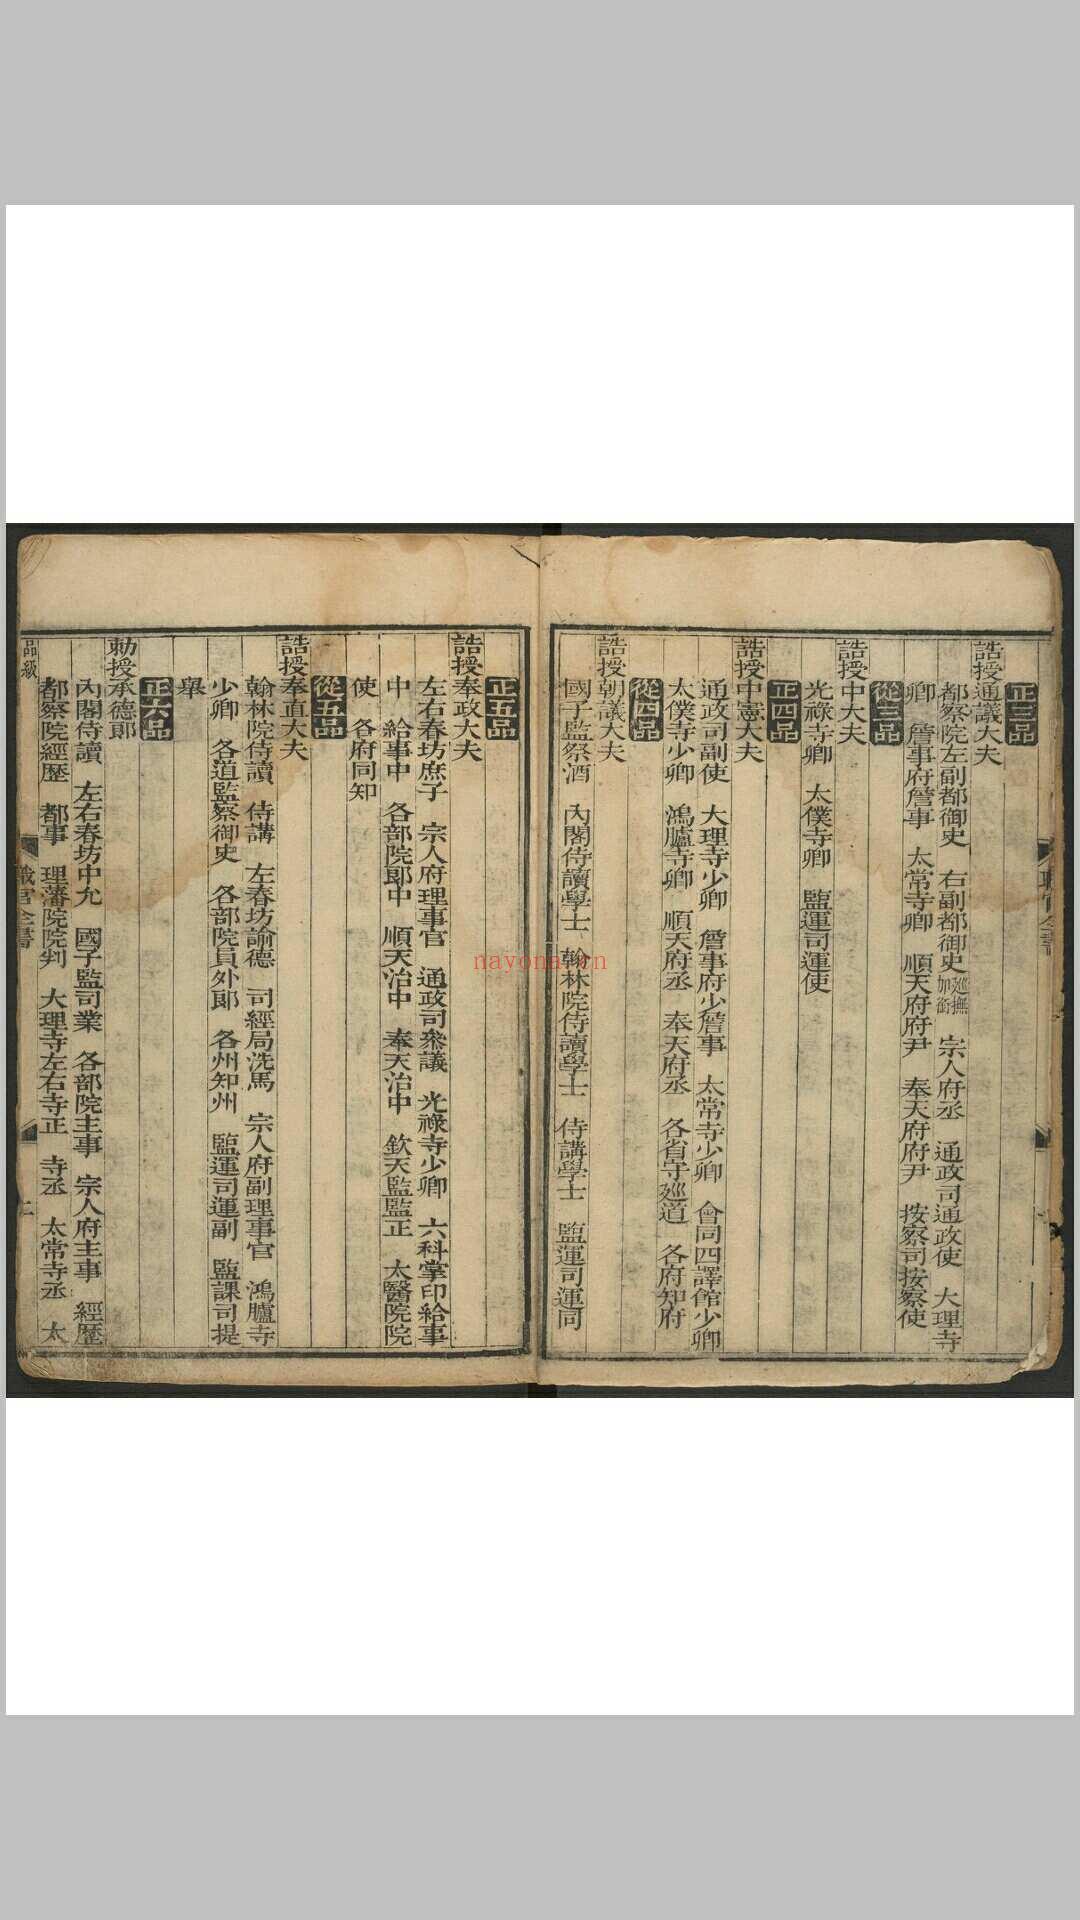 正三品
誥授通議大夫
都察院左副都御史　右副都御史巡撫加銜　宗人府丞　通政司通政使　大理寺
卿　詹事府詹事　太常寺卿　順天府府尹　奉天府府尹　按察司按察使
從三品
誥授中大夫
光祿寺卿　太僕寺卿　監運司運使
正四品
誥授中憲大夫
通政司副使　大理寺少卿　詹事府少詹事　太常寺少卿　會同四譯館少卿
太僕寺少卿　鴻臚寺卿　順天府丞　奉天府丞　各省守廵道　各府知府
從四品
誥授朝議大夫
國子監祭酒　內閣侍讀學士　翰林院侍讀學士　侍講學士　監運司運同
正五品
誥授奉政大夫
左右春坊庶子　宗人府理事官　通政司叅議　光祿寺少卿　六科掌印給事
中　給事中　各部院郎中　順天治中　奉天治中　欽天監監正　太醫院院
使　各府同知
從五品
誥授奉直大夫
翰林院侍讀　侍講　左春坊諭德　司經局洗馬　宗人府副理事官　鴻臚寺
少卿　各道監察御史　各部院員外郎　各州知州　監運司運副　監課司提
舉
正六品
勅授承德郎
內閣侍讀　左右春坊中允　國子監司業　各部院主事　宗人府主事　經歷
都察院經歷　都事　理藩院院判　大理寺左右寺正　寺丞　太常寺丞　太
品級　職官全書　二
nayona.cn